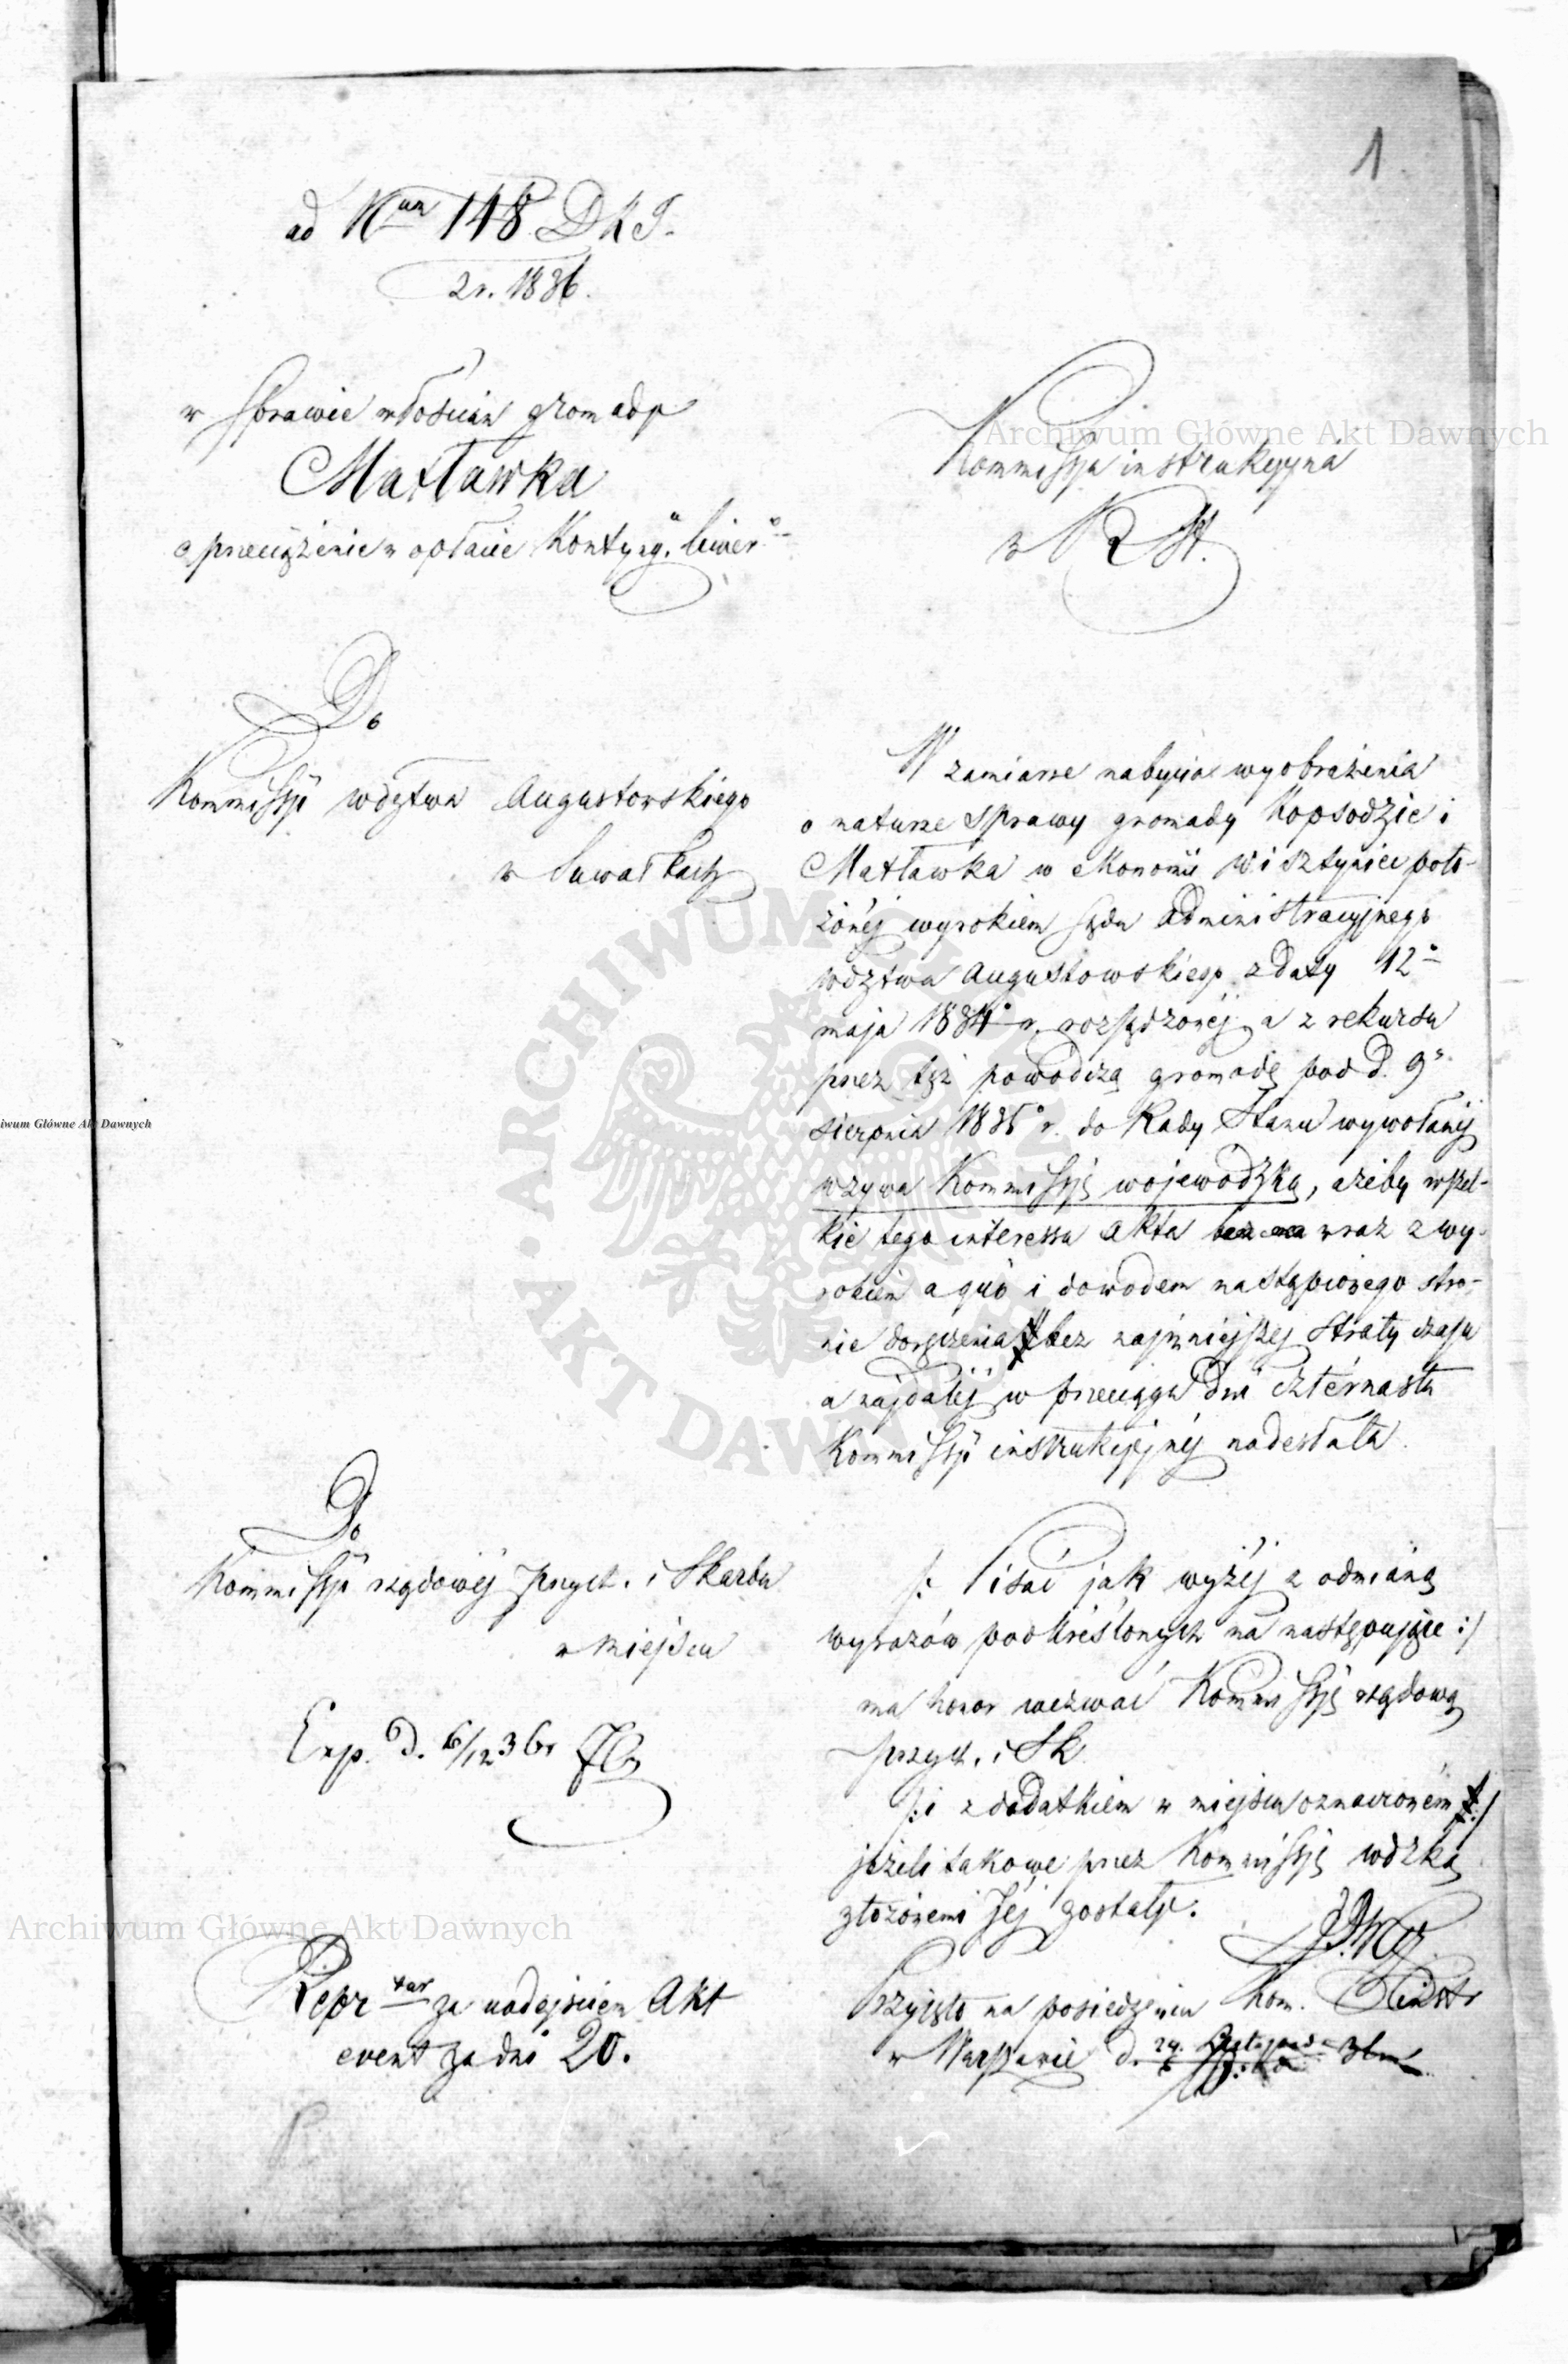 1
ad Num 148 DKJ.
z r. 1836.
w sprawie włościan gromady
Maxławka
o przeciążenie w opłacie Kontyng. liwer.
Kommissya instrukcyjna
w R St.
Do
Kommissyi wdztwa Augustowskiego
w Suwałkach
W zamiarze nabycia wyobrażenia
o naturze sprawy gromady Kopsodzie i
Maxławka w ekonomii Wisztyniec poło-
żonéj wyrokiem Sądu Administracyjnego
wdztwa Augustowskiego z daty 12o
maja 1834o r. rozsądzonéj a z rekursu
przez też powodową gromadę pod d. 9o
sierpnia 1835o r. do Rady Stanu wywołanéj
wzywa Kommissyę wojewodzką, ażeby wszel-
kie tego interessu akta wraz z wy-
rokiem a quo i dowodem nastąpionego stro-
nie doręczenia # bez najmniejszej straty czasu
a najdaléj w przeciągu dni czternastu
Kommissyi instrukcyjnéj nadesłała.
Do
Kommissyi rządowéj Przych. i Skarbu
w miejscu
/: Pisać jak wyżéj z odmianą
wyrazów podkreślonych na następujące :/
ma honor wezwać Kommissyę rządową
przych. i Sk.
/: i z dodatkiem w miejscu oznaczoném # :/
jeżeli takowe przez Kommissyę wdzką
złożonemi Jéj zostały.
Exp. d. 6/12 36 r
Repr tur za nadejściem Akt
event za dni 20.
Przyjęto na posiedzeniu Kom. Instr
w Warszawie d. 24. Listopada 36
Archiwum Główne Akt Dawnych
iwum Główne Akt Dawnych
ARCHIWUM GŁÓWNE AKT DAWNYCH
Archiwum Główne Akt Dawnych